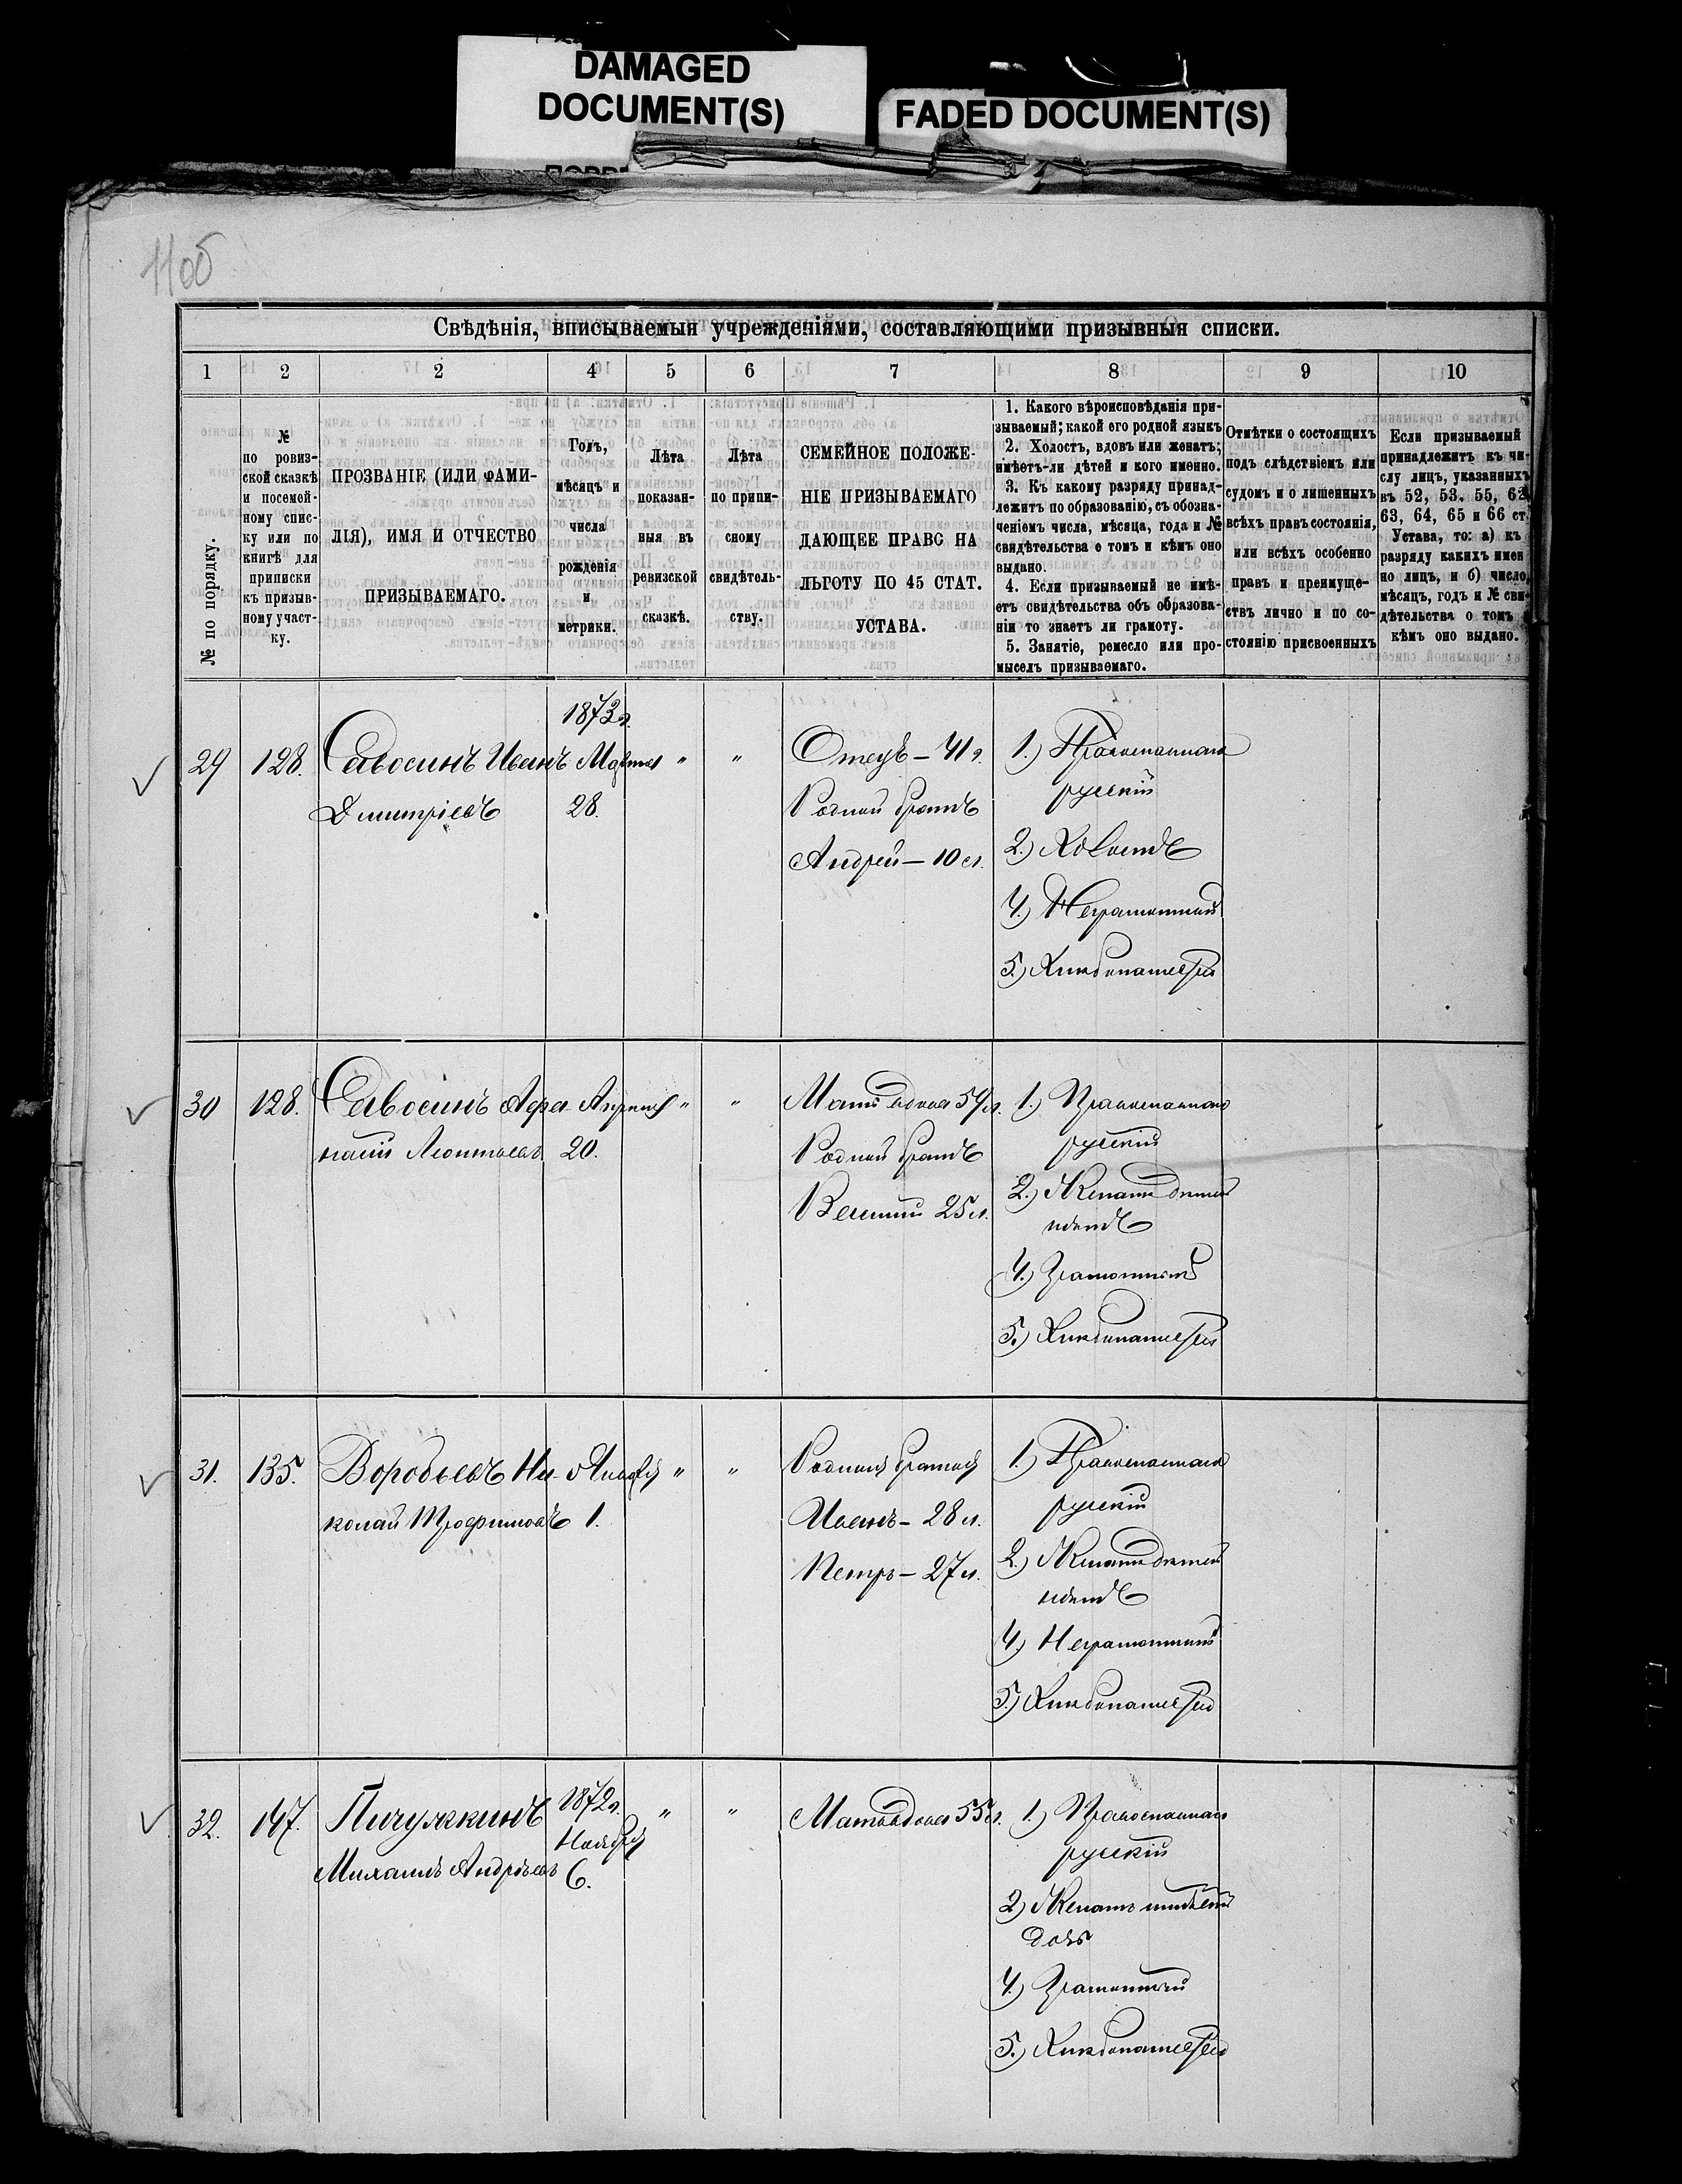 DAMAGED
DOCUMENT(S)
FADED DOCUMENT(S)
110б
Свѣдѣнія, вписываемыя учрежденіями, составляющими призывные списки.
1 2 2 4 5 6 7 8 9 10
№ по порядку.
№
по ровиз-
ской сказкѣ
и посемей-
ному спис-
ку или по
книгѣ для
приписки
къ призыв-
ному участ-
ку.
ПРОЗВАНІЕ (ИЛИ ФАМИ-
ЛІЯ), ИМЯ И ОТЧЕСТВО
ПРИЗЫВАЕМАГО.
Годъ,
мѣсяцъ и
числа
рожденія
и
метрики.
Лѣта
показан-
ныя въ
ревизской
сказкѣ.
Лѣта
по припи-
сному
свидѣтель-
ству.
СЕМЕЙНОЕ ПОЛОЖЕ-
НІЕ ПРИЗЫВАЕМАГО
ДАЮЩЕЕ ПРАВС НА
ЛЬГОТУ ПО 45 СТАТ.
УСТАВА.
1. Какого вѣроисповѣданія при-
зываемый; какой его родной языкъ
2. Холостъ, вдовъ или женатъ;
имѣетъ-ли дѣтей и кого именно.
3. Къ какому разряду принад-
лежитъ по образованію, съ обозна-
ченіемъ числа, мѣсяца, года и №
свидѣтельства о томъ и кѣмъ оно
выдано.
4. Если призываемый не имѣ-
етъ свидѣтельства объ образова-
ніи то знаетъ ли грамоту.
5. Занятіе, ремесло или про-
мыселъ призываемаго.
Отмѣтки о состоящихъ
подъ слѣдствіемъ или
судомъ и о лишенныхъ
всѣхъ правъ состоянія,
или всѣхъ особенно
правъ и преимуще-
ствъ лично и по со-
стоянію присвоенныхъ
Если призываемый
принадлежитъ къ чи-
слу лицъ, указанныхъ
въ 52, 53, 55, 62
63, 64, 65 и 66 ст.
Устава, то: а) къ
разряду какихъ имен
но лицъ, и б) число,
мѣсяцъ, годъ и № сви-
дѣтельства о томъ и
кѣмъ оно выдано.
1873г.
29 128. Савосинъ Иванъ Марта " " Отецъ – 41 г. 1.) Православнаго
Дмитріевъ 28. Родной братъ русскій
Андрей – 10 л. 2.) Холостъ
4.) Неграмотный
5.) Хлѣбопашество
30 128. Савосинъ Афа- Апрѣля " " Мать вдова 54 л. 1.) Православнаго
насій Леонтьевъ 20. Родной братъ русскій
25 л. 2.) Женатъ дѣтей
нѣтъ
4.) Грамотный
5.) Хлѣбопашество
31. 135. Воробьевъ Ни- Января " " Родныя братья 1.) Православнаго
колай Трофимовъ 1. Иванъ – 28 л. русскій
Петръ – 27 л. 2.) Женатъ дѣтей
нѣтъ
4.) Неграмотный
5.) Хлѣбопашество
32. 147. Пичужкинъ 1872г. " " Мать вдова 55 л. 1.) Православнаго
Ноября русскій
Михаилъ Андреевъ 6. 2) Женатъ имѣетъ
дочь
4.) Грамотный
5.) Хлѣбопашество